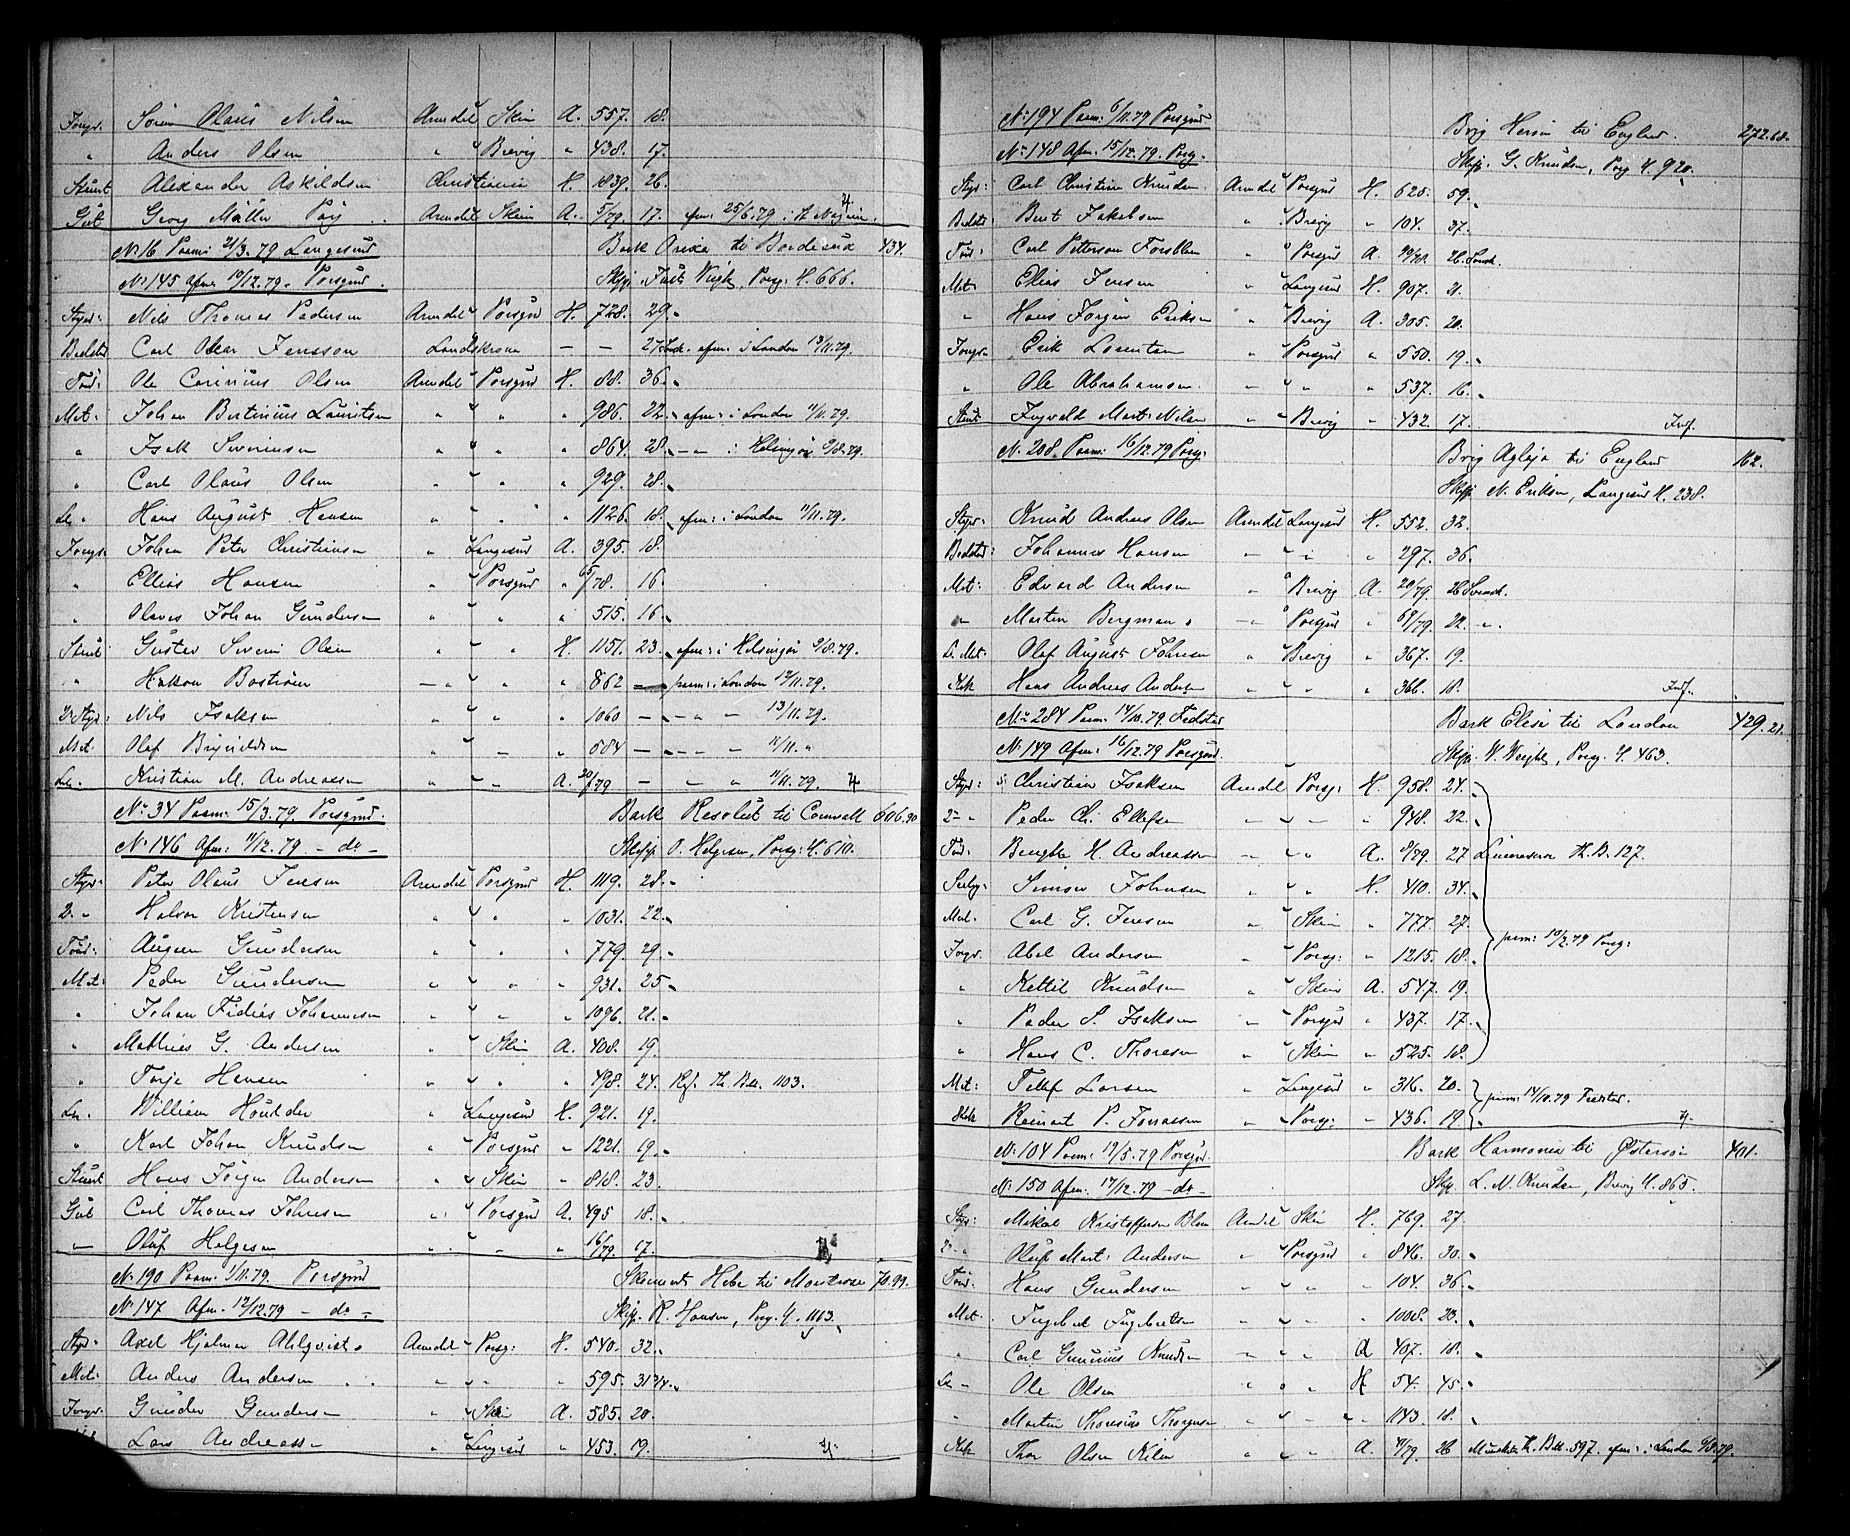 Jongr. Sören Olaus Nilsen Arendal " Skien A. 557. 18.
" Anders Olsen " " Brevig " 438. 17.
Stuert Alexander Askildsen Christiania H. 1839. 26.
Gut Georg Möller Arendal Skien A. 5/79. 17. afm: 25/6.79 i
No 16 Paam: 21/3.79 Langesund Bark Orixa til Bordeaux 434.
No 145 Afm: 10/12.79. Porsgrund. Skipp. Just Wright Porsg: H. 666.
Styrm: Nils Thomas Pedersen Arendal " Porsgrd H. 728. 29.
Bedstm Carl Oscar Jensson Landskrona — — 27 Svensk. afm: i London 13/11.79.
Töm: Ole Olsen Arendal " Porsgrd H. 88. 36.
Mat: Johan Bertinius Lauritsen " " " " 986. 22. afm: i London 11/11.79.
" Isak Severinsen " " " " 864. 28. — " — i Helsingör 9/8.79.
" Carl Olaus Olsen " " " " 929. 28.
L: " Hans August Hansen " " " " 1126. 18. afm: i London 11/11.79.
Jongr. Johan Peter Christiansen " " Langesund A. 395. 18.
" Ellias Hansen " " Porsgrd " 65/78. 16.
" Olaves Johan Gundersen " " " " 515. 16.
Stuert Gustav Severin Olsen " " " H. 1151. 23. afm: i Helsingör 9/8.79.
" Hakon Boström — " — " " " 862 — paam: i London 12/11.79.
2 Styr: Nils Isaksen " " " " 1060 — — " — " 13/11.79.
Mat. Olaf Brynildsen " " " " 884 — — " — " 11/11. "
L: Kristian M. Andreassen " " " A. 20/79 — " " 11/11.79.
No 34 Paam: 15/3.79. Porsgrund. Bark Resolut til Cornwall 606.90
No 146 Afm: 11/12.79 — do — Skipp O. Helgesen, Porsg: H. 610.
Styr: Peter Olaus Jensen Arendal " Porsgrund H. 1119. 28.
2. " Halvor Kristensen " " " " 1031. 22.
Töm: Gundersen " " " " 779. 29.
Mat: Peder Gundersen " " " " 931. 25.
" Johan Fidias Johannesen " " " " 1096. 21.
" Mathias G. Andersen " " Skien A. 408. 19.
" Terje Hansen " " " " 498. 24. Rf. Th. B. 1103.
L: William Houlder " " Langesund H. 921. 19.
" Karl Johan Knudsen " " Porsgrd " 1221. 19.
Stuert Hans Jörgen Andersen " " Skien " 818. 23.
Gut Carl Thomas Johnsen " " Porsgrd A. 495 18.
" Oluf Helgesen " " " " 16/79. 17.
No 190 Paam: 1/11.79. Porsgrund Skonnert Hebe til Montrose 70.99.
No 147 Afm. 12/12.79 — do — Skipp. R. Hansen, Porsg. H. 1113.
Styr: Axel Hjalmar Ahlqvist Arendal " Porsg: H. 540. 32.
Mat: Anders Andersen " " " " 595. 31 3/4.
Jongr. Gunder Gundersen " " Skien A. 585. 20.
Lars Andreassen " " Langesund " 453. 19.
No 194 Paam: 6/11.79 Porsgrund Brig Hersir til England. 272.68.
No 148 Afm. 15/12.79. Porsg. Skipp. G. Knudsen, Porsg H. 920.
Styr: Carl Christian Knudsen Arendal " Porsgrd H. 625. 59.
Bedstm Bent Jakobsen " " Brevig " 104. 37.
Töm: Carl Petterson Forsblom " " Porsgrd A. 26. Svensk.
Mat: Ellias Jensen " " Langesund H. 907. 21.
" Hans Jörgen Eriksen " " Brevig A. 305. 20.
Jongr. Erik Lorentsen " " Porsgrd " 550. 19.
" Ole Abrahamsen " " " " 537. 16.
Stuert Ingvald Mart: Nilsen " " Brevig " 432. 17.
No 208. Paam: 16/12.79 Porsg: Brig Aglaja til England 162.
Skipp N. Eriksen, Langesund H. 238.
Styr: Knud Andreas Olsen Arendal Langesund H. 552. 32.
Bedstm: Johannes Hansen — " " " 297. 36.
Mat: Edvard Andersen " " Brevig A. 20/79. 26 Svensk.
" Martin Bergman — " Porsgrd " 69/79. 22. — " —
L. Mat: Olaf August Johnsen " " Brevig " 367. 19.
Kok Hans Andreas Andersen " " " " 366. 18.
No 284 Paam: 14/10.79. Fredstad Bark Elise til London 429.21.
No 149 Afm: 16/12.79 Porsgrund. Skipp. W. Wright, Porsg. H. 463.
Styr: Christian Isaksen Arendal Porsg: H. 958. 24.
2 — " Peder Chr. Ellefsen — " " " — " 948. 22.
Töm: Bengthe H. Andreassen — " " A. 8/79. 27 Th. B. 127.
Seilm: Simon Johnsen " " " H. 410. 34.
Mat. Carl G. Jensen " " Skien " 777. 27.
Jongr. Abel Andersen " " Porsg: " 1215. 18. paam: 10/2.79 Porsg:
" Kettil Knudsen " " Skien A. 547. 19.
" Peder S. Isaksen " " Porsgrd " 437. 17.
" Hans C. Thoresen " " Skien " 525. 18.
Mat: Tellef Larsen " " Langesund " 316. 20. paam: 14/10.79 Fredstad.
Kok Reinert P. Jonassen " " Porsg: " 436. 19.
No 104 Paam: 19/5.79 Porsgrd. Bark Harmonia til Östersöen 401.
No 150 Afm. 17/12.79 — do — Skipp L. N. Knudsen, Brevig H. 865.
Styr: Mikal Kristoffersen Blom Arendal " Skien H. 769. 27.
2 — " Oluf Mart: Andersen " " Porsgrd " 846. 30.
Töm: Hans Gundersen " " " " 104. 36.
Mat: Ingebret Ingebretsen " " " " 1008. 23.
" Carl Gunnius Knudsen " " " A 407. 18.
L — Ole Olsen " " " H 54. 45.
" Martin Thorgrimsen " " " " 1143 18.
Kok Thor Olsen Kilen " " " A. 4/79. 26 Th. B. 597. afm: i London 6/8.79.